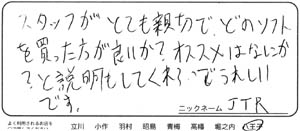 スタッフが とても親切で、どのソフト
を買った方が良いか？オススメはなにか
？と説明もしてくれるでうれしい
です。
ニックネーム JTR
よく利用されるお店を
立川 小作 羽村 昭島 青梅 高幡 堀之内